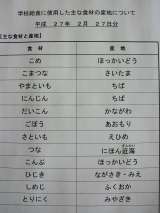 学校給食に使用した主な食材の産地について
平成 27年 2月 27日分
【主な食材と産地】
食材 産地
こめ ほっかいどう
こまつな さいたま
やまといも ちば
にんじん ちば
だいこん かながわ
ごぼう あおもり
さといも えひめ
つな にほん近海
こんぶ ほっかいどう
ひじき ながさき・みえ
しめじ ふくおか
とりにく みやざき